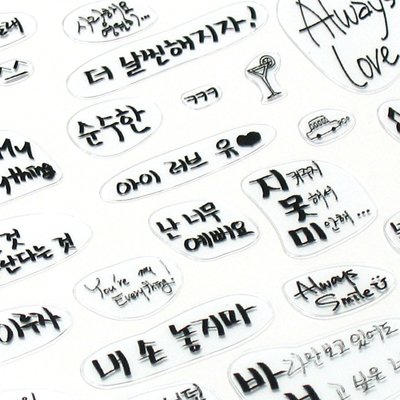 사랑해요
영원히...
더 날씬해지자!
Always
Love
ㅋㅋㅋ
순수한
My
아이 러브 유♥
지켜주지
못해서
미안해...
난 너무
예뻐요
것
란다는 것
You're my
Everything!
Always
Smile
이루자
내 손 놓지마
바라만 보고 있어도